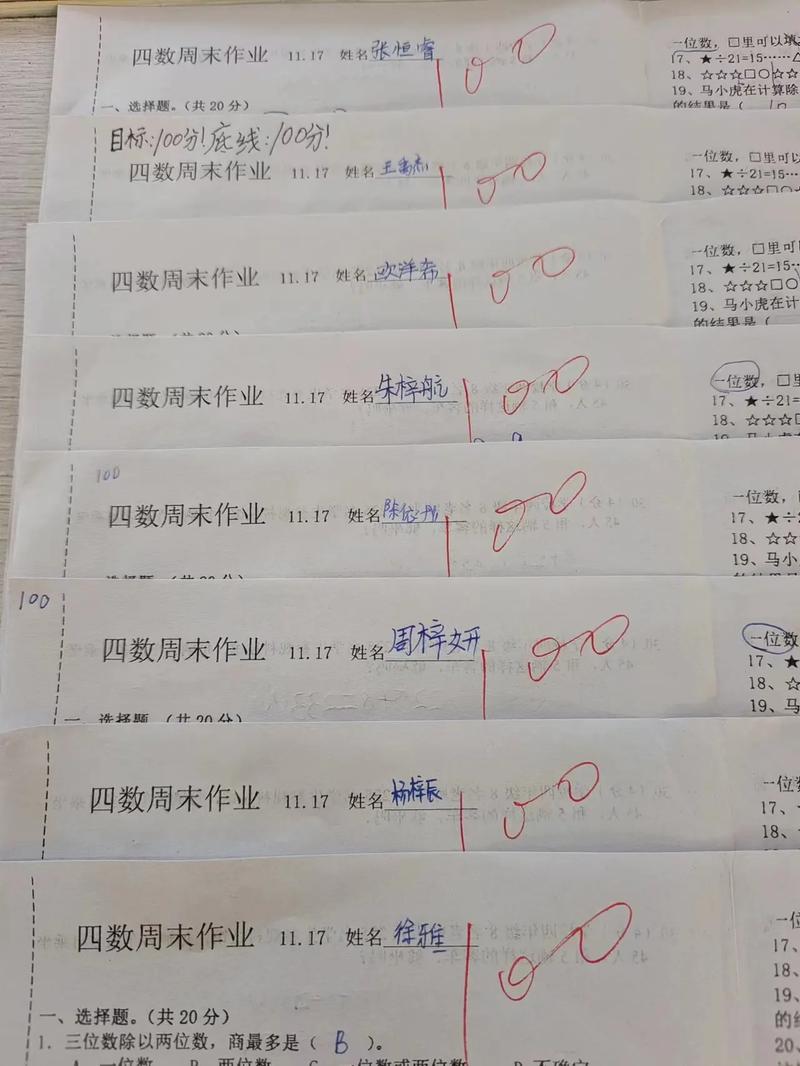 四数周末作业 11.17 姓名 张恒睿 100
一、选择题。（共20分）
一位数，□里可以填
17、★÷21=15……△
18、☆☆☆□○☆☆
19、马小虎在计算除
的结果是（
目标：100分！底线：100分！
四数周末作业 11.17 姓名 100
一位数，□里可以填
17、★÷21=15…
18、☆☆☆□○☆
四数周末作业 11.17 姓名 欧洋希 100
一位数，□里可
17、★÷21=15…
18、☆☆☆□○
19、马小虎在计
的结果是（
四数周末作业 11.17 姓名 朱梓航 100
一位数，□里
17、★÷21=
18、☆☆☆□
100
四数周末作业 11.17 姓名 陈依彤 100
一位数，
17、★÷2
18、☆☆
19、马小
100
四数周末作业 11.17 姓名 周梓妍 100
一、选择题。（共20分）
一位数
17、★
18、☆
19、马
四数周末作业 11.17 姓名 杨梓辰 100
一位
17、
18、
四数周末作业 11.17 姓名 徐雅 100
一、选择题。（共20分）
1．三位数除以两位数，商最多是（ B ）。
A、一位数 B、两位数 C、一位数或两位数 D、不确定
一位
17、
18、
19、
的结
20、